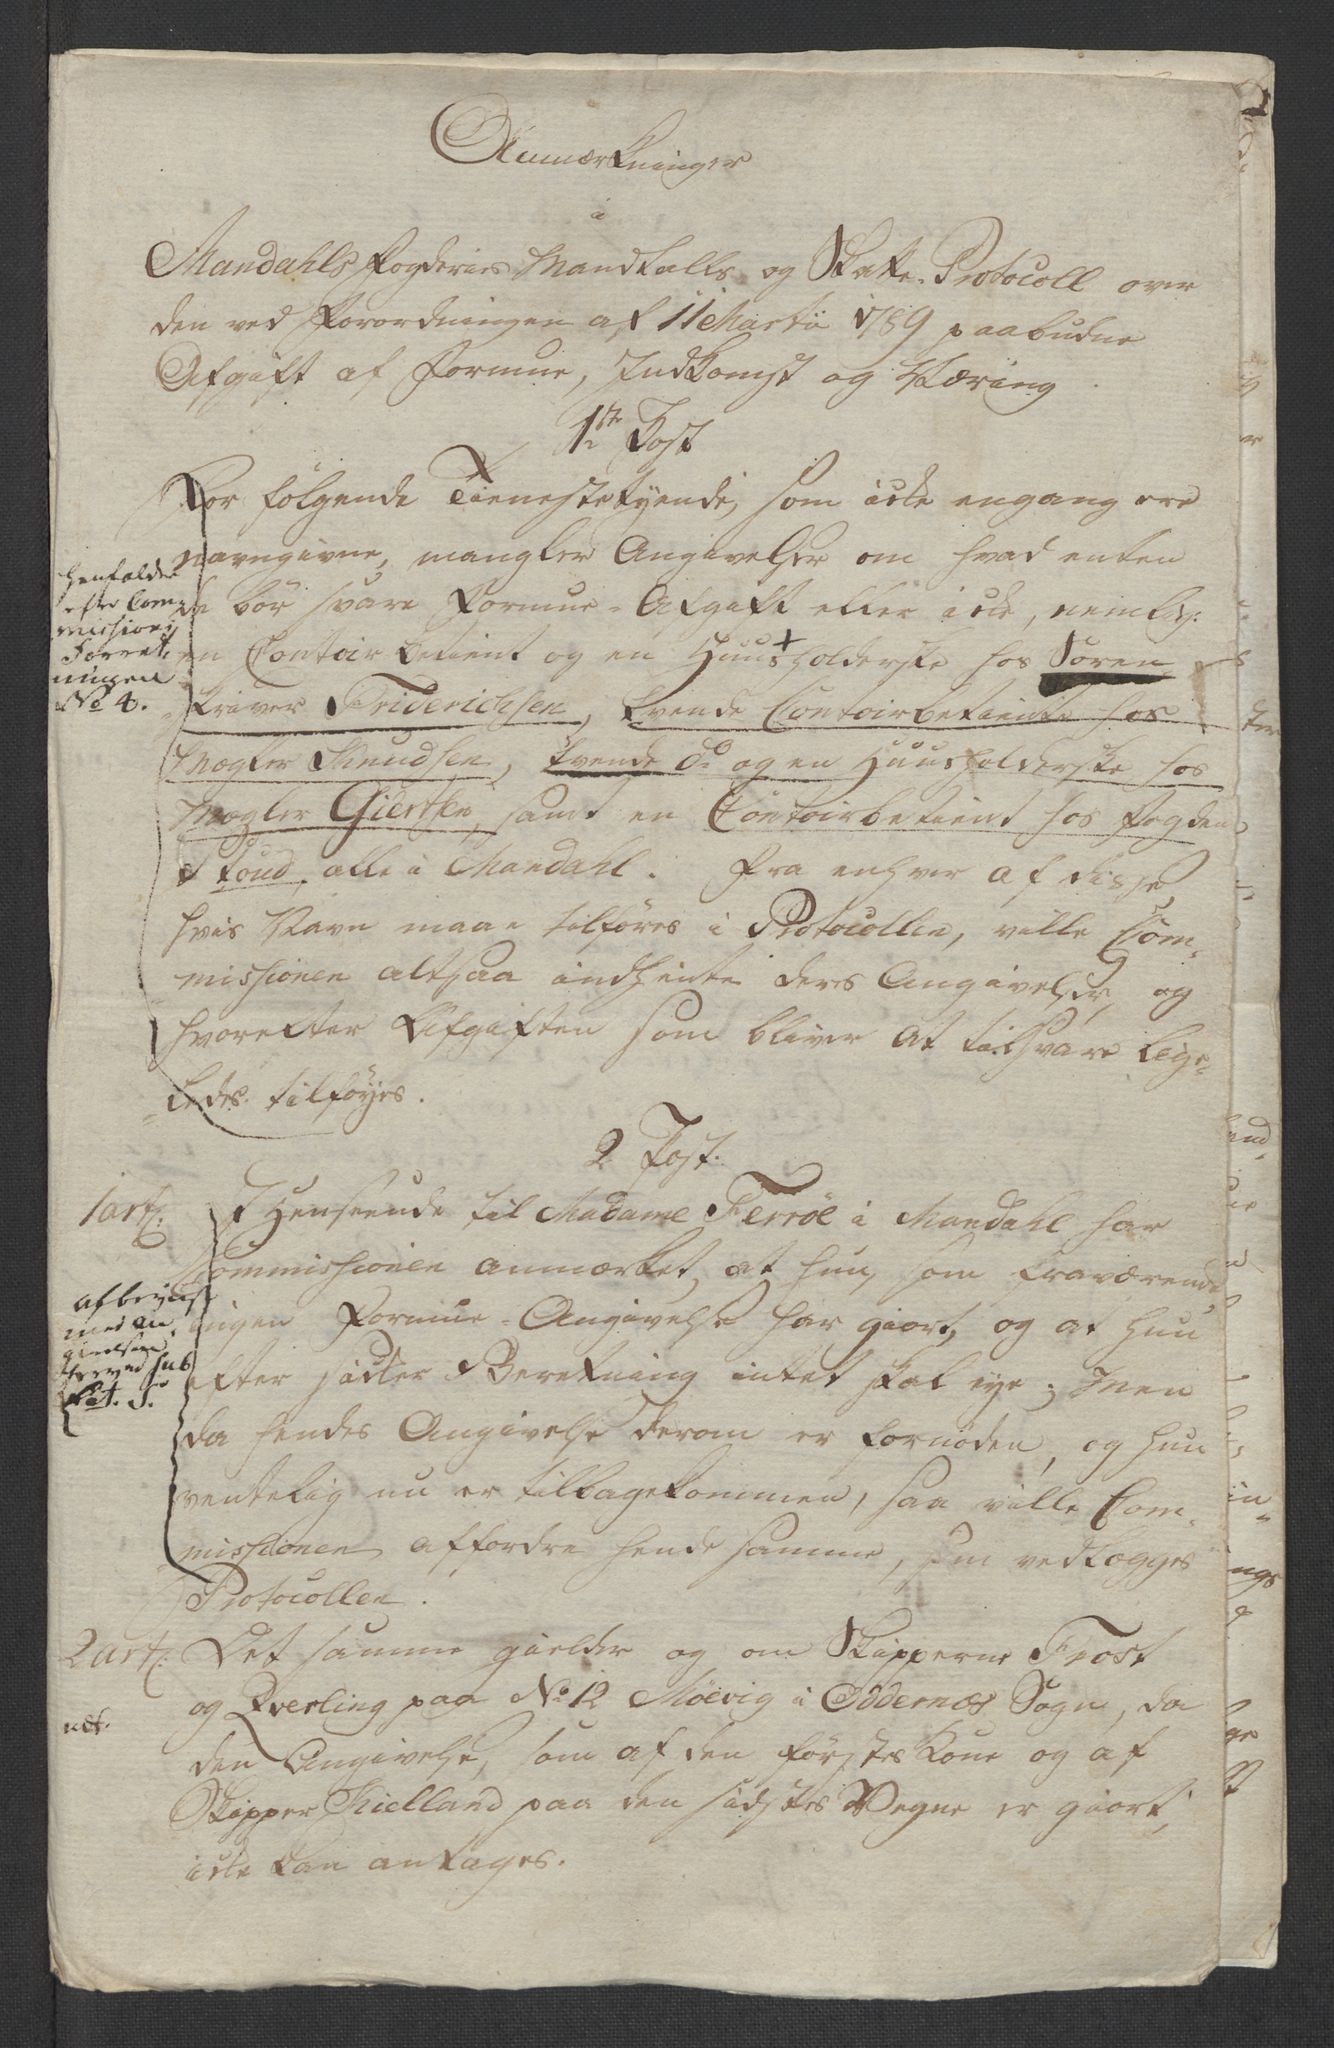 Anmærkninger
i
Mandahls Fogderies Mandtalls og Skatte-Protocoll over
den ved Forordningen af 11 Martii 1789 paabudne
Afgift af Formue, Indkomst og Næring
1ste Post
For fölgende Tienestetyende, som icke engang ere
navngivne, mangler Angivelser om hvad enten
de bör svare Formue-Afgift eller icke, nemlig:
en Contoirbetient og en Huusholderske hos Soren-
skriver Friderichsen, tvende Contoirbetiente hos
Mægler Knudsen, tvende do og en Huusholderske hos
Mægler Giertsen, samt en Contoirbetient hos Fogden
Stoud, alle i Mandahl. Fra enhver af disse,
hvis Navn maae tilföres i Protocollen, ville Com-
missionen altsaa indhente deres Angivelser, og
hvorefter Afgiften som bliver at tilsvare lige-
ledes tilföyes.
henfalder
efter Com-
missions
Forret-
ningen
No 4.
2 Post.
1 art:
I Henseende til Madame Ferröe i Mandahl har
Commissionen anmærket, at hun, som fraværende
ingen Formue-Angivelse har giort, og at hun
efter sidster Beretning intet skal eye; Men
da hendes Angivelse derom er fornöden, og hun
ventelig nu er tilbagekommen, saa ville Com-
missionen affordre hende samme, som vedlægges
Protocollen.
afbevist
med an-
givelsen
herved sub
Lit. F.
2 art:
Det samme gielder og om Skipperne Frost
og Qverling paa No 12 Möevig i Oddernæs Sogn, da
den Angivelse, som af den förstes Kone og af
Skipper Kielland paa den sidstes Vegne er giort,
icke kan antages.